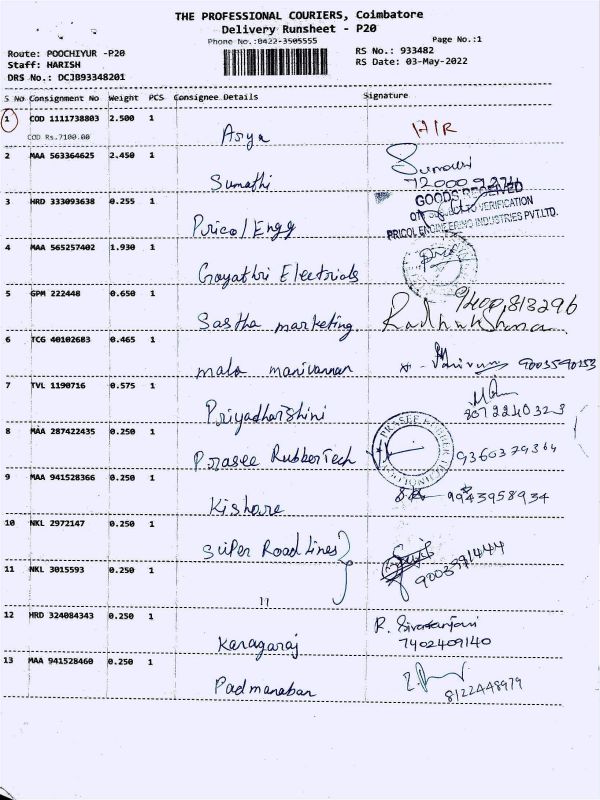 THE PROFESSIONAL COURIERS, Coimbatore
Delivery Runsheet - P20
Phone No.:0422-3505555
Page No.:1
Route: POOCHIYUR -P20
RS No.: 933482
Staff: HARISH
RS Date: 03-May-2022
DRS No.: DCJB93348201
S No Consignment No Weight PCS Consignee Details Signature
1 COD 1111738803 2.500 1
COD Rs.7100.00
Asya H/R
2 MAA 563364625 2.450 1
Sumathi
3 HRD 333093638 0.255 1
GOODS RECEIVED
VERIFICATION
Pricol Engg PRICOL ENGINEERING INDUSTRIES PVT.LTD.
4 MAA 565257402 1.930 1
Gayathri Electricals
5 GPM 222448 0.650 1
Sastha marketing
6 TCG 40102683 0.465 1
mala manivannan 9003590253
7 TVL 1190716 0.575 1
Priyadharshini 8072240323
8 MAA 287422435 0.250 1
PRASEE RUBBER
Prasee RubberTech 9360379364
9 MAA 941528366 0.250 1
Kishore 9943958934
10 NKL 2972147 0.250 1
Super Road Lines
11 NKL 3015593 0.250 1
9003991444
11
12 HRD 324084343 0.250 1
R. Sivaranjani
Kanagaraj 7402409140
13 MAA 941528460 0.250 1
Padmanaban 8122448979